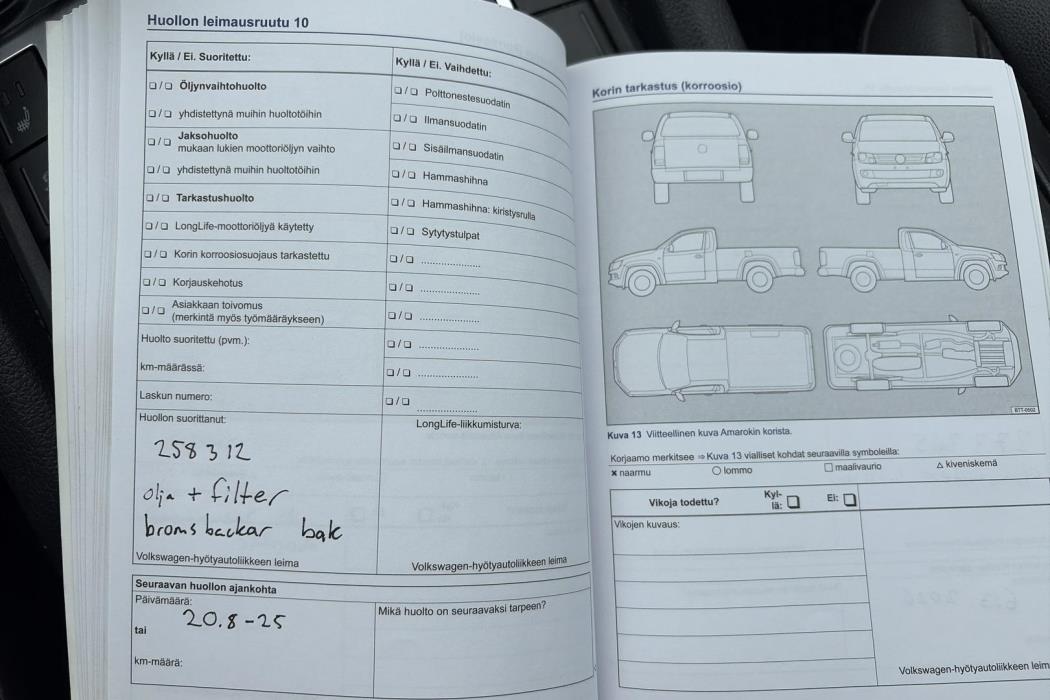 Huollon leimausruutu 10
Kyllä / Ei. Suoritettu:
❑ / ❑ Öljynvaihtohuolto
❑ / ❑ yhdistettynä muihin huoltotöihin
❑ / ❑ Jaksohuolto
mukaan lukien moottoriöljyn vaihto
❑ / ❑ yhdistettynä muihin huoltotöihin
❑ / ❑ Tarkastushuolto
❑ / ❑ LongLife-moottoriöljyä käytetty
❑ / ❑ Korin korroosiosuojaus tarkastettu
❑ / ❑ Korjauskehotus
❑ / ❑ Asiakkaan toivomus
(merkintä myös työmääräykseen)
Huolto suoritettu (pvm.):
km-määrässä:
Laskun numero:
Huollon suorittanut:
258 312
olja + filter
bromsbackar bak
Volkswagen-hyötyautoliikkeen leima
Kyllä / Ei. Vaihdettu:
❑ / ❑ Polttonestesuodatin
❑ / ❑ Ilmansuodatin
❑ / ❑ Sisäilmansuodatin
❑ / ❑ Hammashihna
❑ / ❑ Hammashihna: kiristysrulla
❑ / ❑ Sytytystulpat
❑ / ❑ ....................
❑ / ❑ ....................
❑ / ❑ ....................
❑ / ❑ ....................
❑ / ❑ ....................
❑ / ❑ ....................
LongLife-liikkumisturva:
Volkswagen-hyötyautoliikkeen leima
Seuraavan huollon ajankohta
Päivämäärä:
20.8-25
tai
km-määrä:
Mikä huolto on seuraavaksi tarpeen?
Korin tarkastus (korroosio)
B7T-0602
Kuva 13 Viitteellinen kuva Amarokin korista.
Korjaamo merkitsee ⇒ Kuva 13 vialliset kohdat seuraavilla symboleilla:
✖ naarmu ○ lommo □ maalivaurio △ kiveniskemä
Vikoja todettu? Kyl-
lä: ❑ Ei: ❑
Vikojen kuvaus:
Volkswagen-hyötyautoliikkeen leim